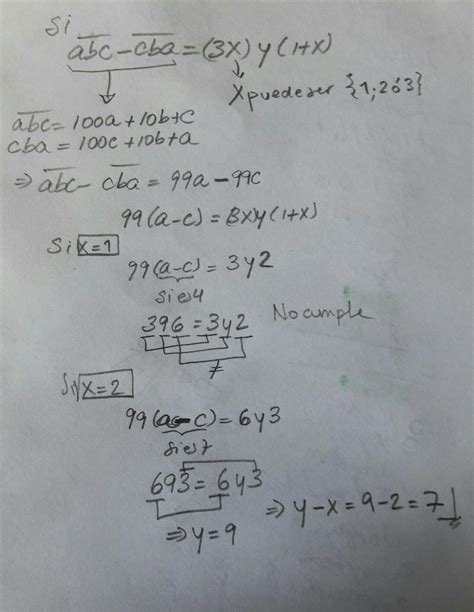 Si
abc - cba = (3x) y (1+x)
x puede ser {1; 2 ó 3}
abc = 100a + 10b + c
cba = 100c + 10b + a
⇒ abc - cba = 99a - 99c
99(a-c) = 3xy(1+x)
Si x=1
99(a-c) = 3y2
si es 4
396 = 3y2 No cumple
≠
Si x=2
99(a-c) = 6y3
si es 7
693 = 6y3 ⇒ y-x = 9-2 = 7
⇒ y = 9